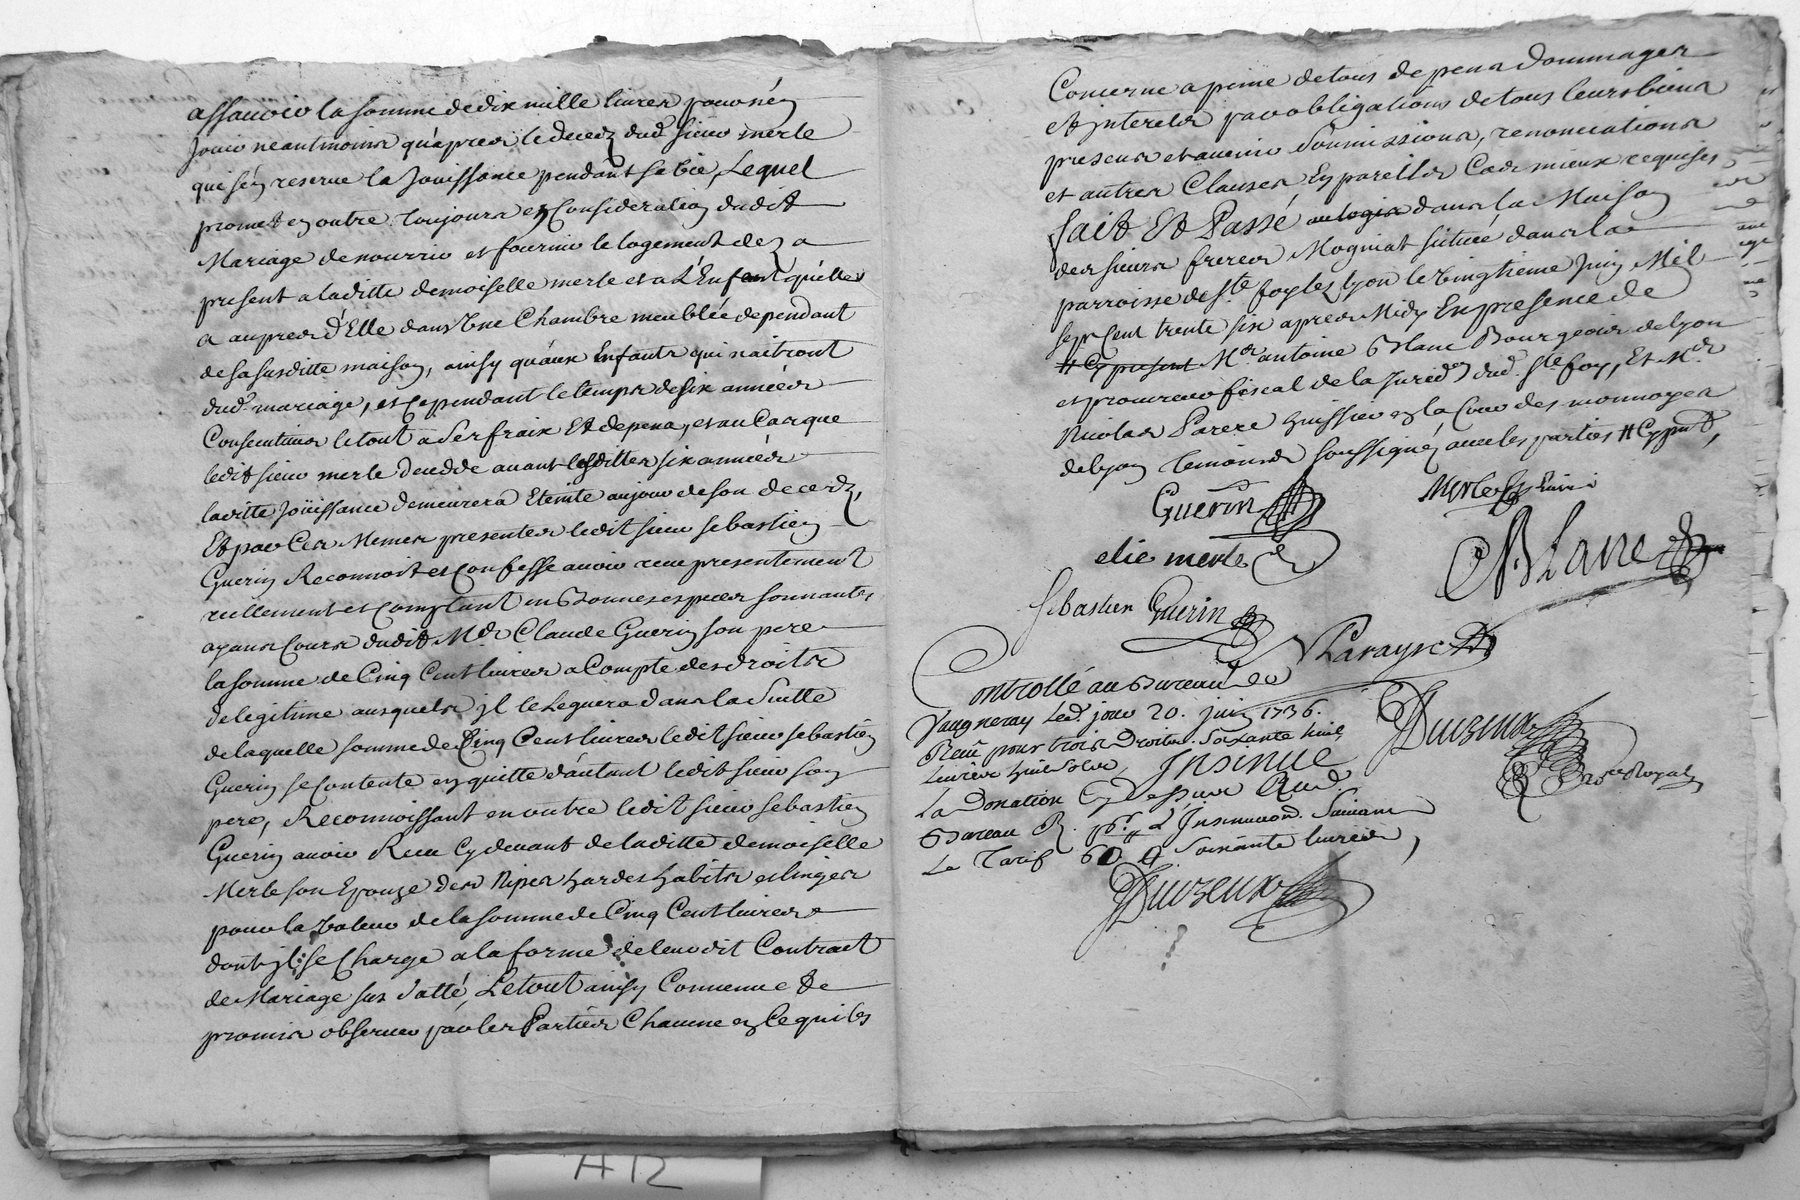 assavoir la somme de dix mille livres pour n'en
jouir neantmoins qu'apres le decez dud. sieur merle
qui s'en reserve la Jouissance pendant sa vie, Lequel
promet en outre toujours en Consideration dudit
Mariage de nourrir et fournir le logement dez a
present a laditte demoiselle merle et a L'Enfant qu'elle
a aupres d'Elle dans Une Chambre meublée dependant
de sa susditte maison, ainsy qu'aux Enfants qui naitront
dud. mariage, et Cependant le temps de six années
Consecutives le tout a Ses fraix Et depens, et au Cas que
ledit sieur merle decedde avant lesdittes six années
laditte Joüissance demeurera Eteinte au jour de son decedz,
Et par Ces Memes presentes ledit sieur sebastien
Guerin Reconnoit et Confesse avoir receu presentement
reellement et Comptant en Bonnes especes sonnantes
ayans Cours dudit Mr. Claude Guerin son pere
la somme de Cinq Cent livres a Compte des droits
de legitime ausquels jl le Leguera dans la Suitte
de laquelle somme de Cinq Cent livres ledit sieur sebastien
Guerin se Contente en quitte d'autant ledit sieur son
pere, Reconnoissant en outre ledit sieur sebastien
Guerin avoir Receu Cy devant de laditte demoiselle
Merle son Epouze des Nipes hardes habits et linges
pour la Valeur de la somme de Cinq Cent livres
dont jl se Charge a la forme de leur dit Contract
de Mariage sus datté, Le tout ainsy Convenu et
promis observer par les Parties Chacune en Ce qui les
Concerne a peine de tous depens dommages
et interets par obligations de tous leurs biens
presens et avenir Soumissions, renonciations
et autres Clauses En pareils Cas mieux requises
fait Et Passé au logis dans la Maison
des sieurs freres Mogniat sittuée dans la
parroisse de Ste. foy les Lyon le Vingtieme Juin Mil
sept Cent trente six apres Midy En presence de
# Cy present Mr. antoine Blanc Bourgeois de Lyon
et procureur fiscal de la Juridon. dud. Ste foy, Et Mr.
Nicolas Parere huissier en la Cour des monnoyes
de Lyon temoins soussignéz avec les parties # Cy pnt.,
Guerin
Merle
elie merle
A Blanc
sebastien Guerin
Controllé au Bureau de
Vaugneray Led. jour 20. juin 1736.
Receu pour trois Droits Soixante huit
Livres huit Sols,
Insinue
La Donation Cy Dessus Aud.
Bureau R. pr. L'Insinuaon. Suivant
Le Tarif 60 # Soixante livres,
Duizeux
Nore Royal
Duizeux
A12